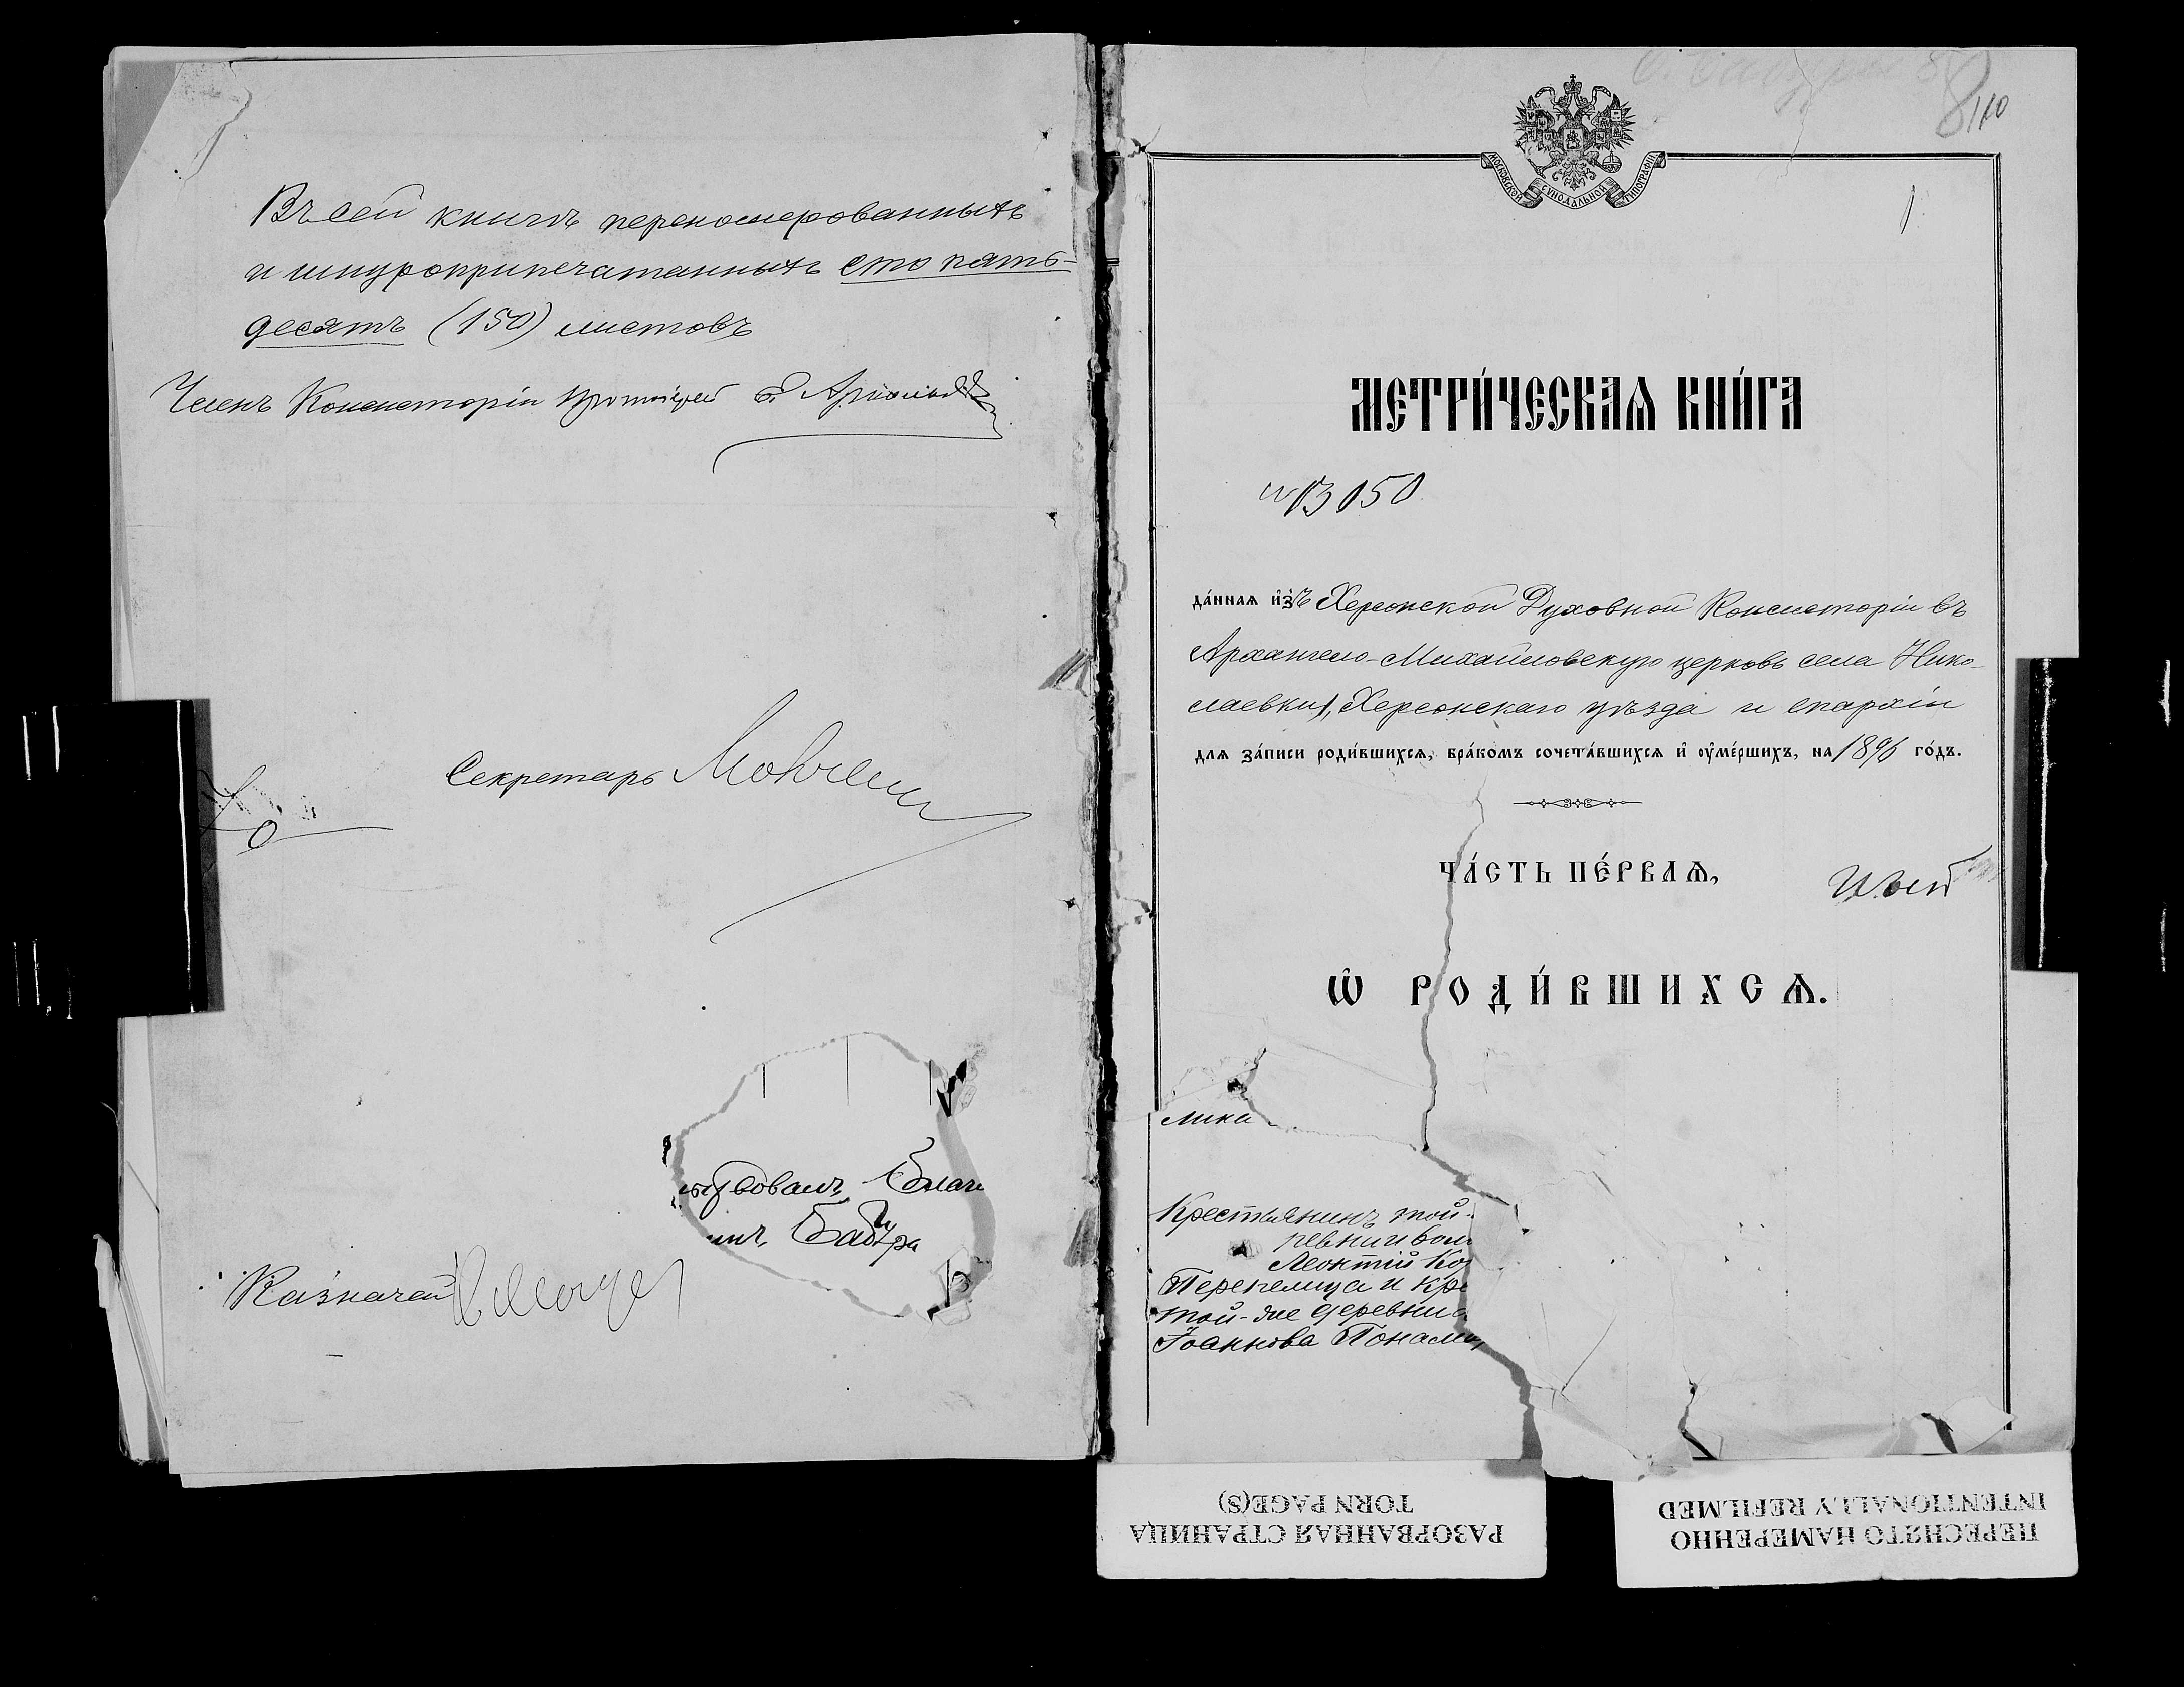 Въ сей книгѣ перенумерованныхъ
и шнуроприпечатанныхъ сто пять-
десятъ (150) листовъ
Членъ Консисторіи Протоіерей
Секретарь
Бабура
Казначей
110
МОСКОВСКОЙ СѴНОДАЛЬНОЙ ТИПОГРАФІИ
1
МЕТРИ́ЧЕСКАѦ КНИ́ГА
№ 13150
да́нная и҆зъ Херсонской Духовной Консисторіи въ
Архангело-Михайловскую церковь села Нико-
лаевки 1, Херсонскаго уѣзда и епархіи
для за́писи роди́вшихся, бра́комъ сочета́вшихся и҆ ѹ҆ме́ршихъ, на 1896 го́дъ.
ЧА́СТЬ ПЕ́РВАѦ,
Ѡ҆ РОДИ́ВШИХСѦ.
лика
Крестьянинъ той-
ревни и вол
Леонтій Ко
Перепелица и кре
той-же деревни
Іоаннова Понама
РАЗОРВАННАЯ СТРАНИЦА
TORN PAGE(S)
ПЕРЕСНЯТО НАМЕРЕННО
INTENTIONALLY REFILMED